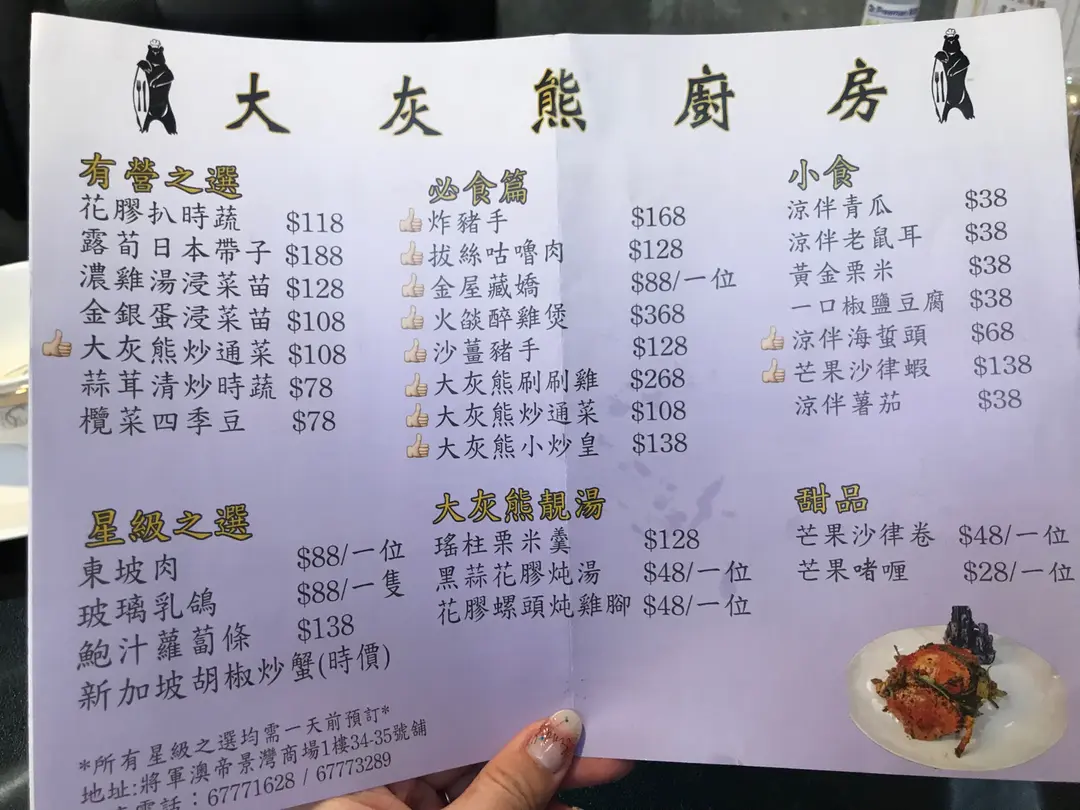 大灰熊廚房
有營之選
花膠扒時蔬 $118
露荀日本帶子 $188
濃雞湯浸菜苗 $128
金銀蛋浸菜苗 $108
大灰熊炒通菜 $108
蒜茸清炒時蔬 $78
欖菜四季豆 $78
必食篇
炸豬手 $168
拔絲咕嚕肉 $128
金屋藏嬌 $88/一位
火燄醉雞煲 $368
沙薑豬手 $128
大灰熊刷刷雞 $268
大灰熊炒通菜 $108
大灰熊小炒皇 $138
小食
涼伴青瓜 $38
涼伴老鼠耳 $38
黃金栗米 $38
一口椒鹽豆腐 $38
涼伴海蜇頭 $68
芒果沙律蝦 $138
涼伴薯茄 $38
星級之選
東坡肉 $88/一位
玻璃乳鴿 $88/一隻
鮑汁蘿蔔條 $138
新加坡胡椒炒蟹(時價)
大灰熊靚湯
瑤柱栗米羹 $128
黑蒜花膠炖湯 $48/一位
花膠螺頭炖雞腳 $48/一位
甜品
芒果沙律卷 $48/一位
芒果啫喱 $28/一位
*所有星級之選均需一天前預訂*
地址:將軍澳帝景灣商場1樓34-35號舖
電話：67771628 / 67773289